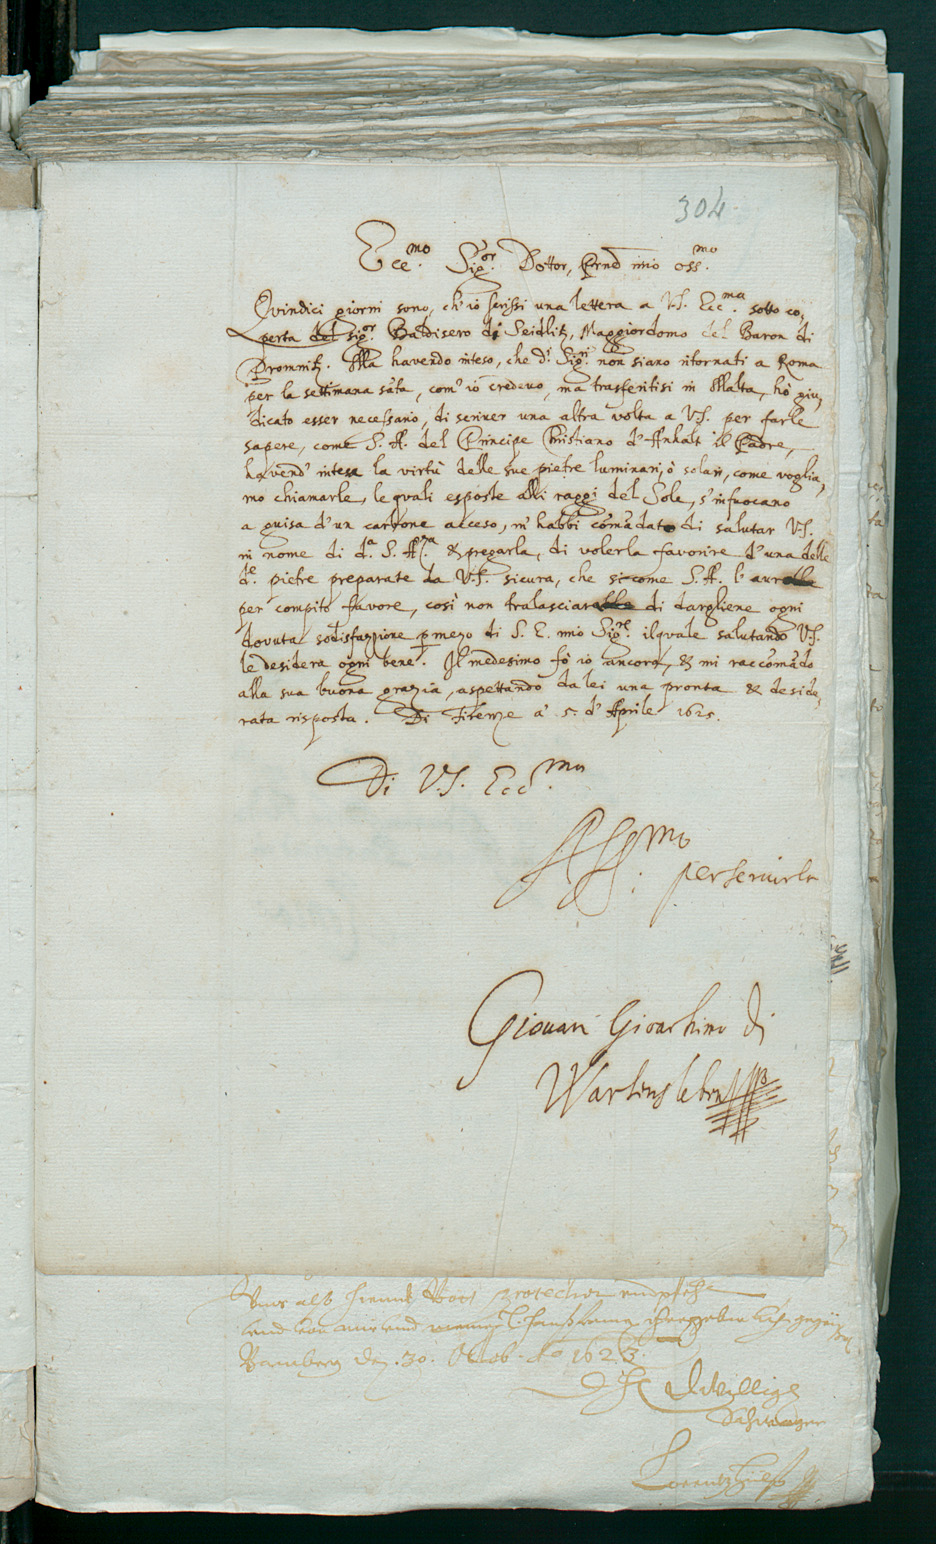 304.
Ecc.mo Sig.or Dottor, Pr͠ne mio oss.mo
Quindici giorni sono, ch'io scrissi una lettera a V.S. Ecc.ma sotto co,
perta del sig.or Baldisero di Seidlitz, Maggiordomo del Baron di
Promnitz. Ma havendo inteso, che d.i Sig.ri non siano ritornati a Roma
per la settimana s͠ta, com' io credevo, ma trasferitisi in Malta, hò giu,
dicato esser necessario, di scriver una altra volta a V.S. per farle
sapere, come S. A. del Principe Christiano d'Anhalt il Padre,
havend' intesa la virtù delle sue pietre luminari, ò solari, come voglia,
mo chiamarle, le quali esposte alli raggi del Sole, s'infuocano
a guisa d'un carbone acceso, m' habbi com͠adato di salutar V.S.
in nome di d.a S. A.za & pregarla, di volerla favorire d'una delle
d.te pietre preparate da V.S. sicura, che sicome S. A. l'
per compito favore, così non di dargliene ogni
dovuta sodisfazzione p mezo di S. E. mio Sig.re ilquale salutando V.S.
le desidera ogni bene. Il medesimo fò io ancora, & mi raccom͠ado
alla sua buona grazia, aspettando da lei una pronta & deside,
rata risposta. Di Firenze a' 5. d'Aprile 1625.
Di V.S. Ecc.ma
Aff.mo per servirla
Giovan Gioachimo di
Wartensleben
Bamberg den 30. Octob. Ao 1623.
Dwilliger
Schwager